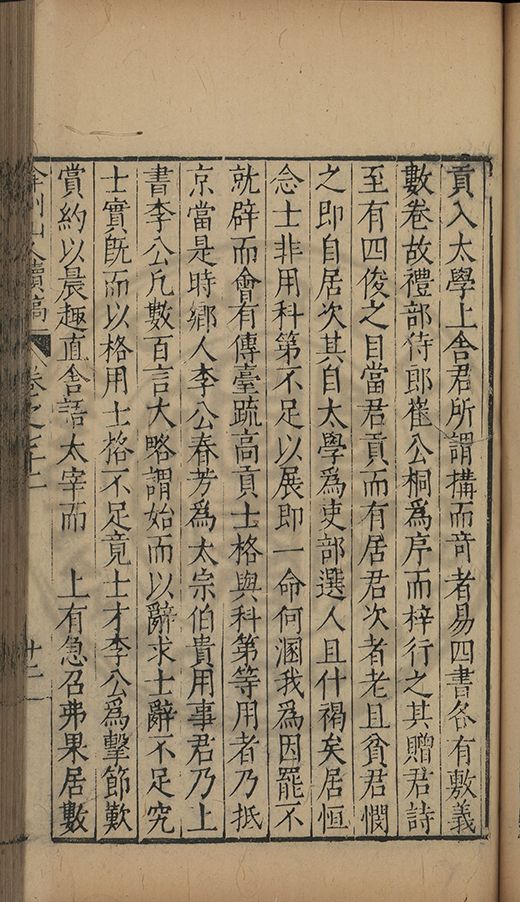 貢入太學上舍君所謂構而竒者易四書各有敷義
數卷故禮部侍郎崔公桐爲序而梓行之其贈君詩
至有四俊之目當君貢而有居君次者老且貧君憫
之即自居次其自太學爲吏部選人且什褐矣居恒
念士非用科第不足以展即一命何溷我爲因罷不
就辟而會有傳臺疏高貢士格與科第等用者乃抵
京當是時鄉人李公春芳爲太宗伯貴用事君乃上
書李公凡數百言大略謂始而以辭求士辭不足究
士實旣而以格用士格不足竟士才李公爲擊節歎
賞約以晨趣直舍語太宰而　上有急召弗果居數
弇州山人續稿 卷之七十二 十二